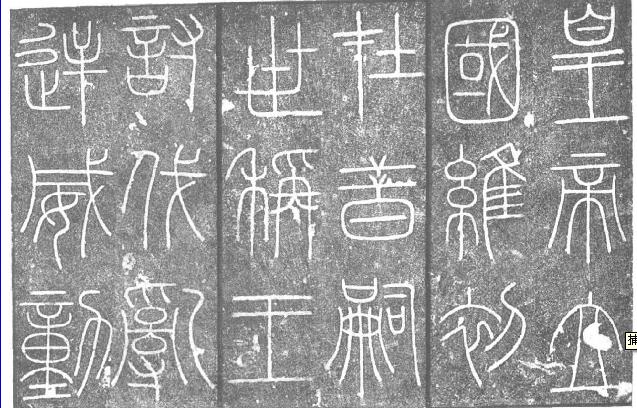 皇帝立
國維初
在昔嗣
世稱王
討伐亂
逆威動